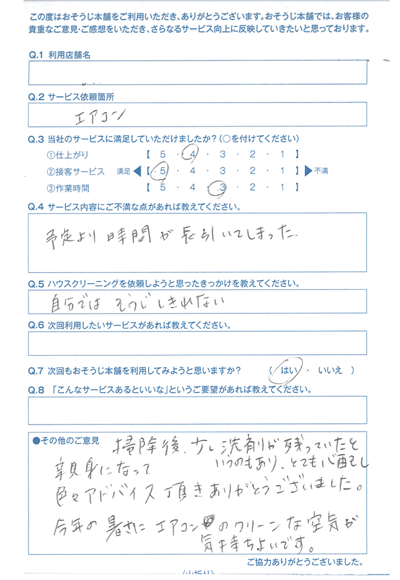 この度はおそうじ本舗をご利用いただき、ありがとうございます。おそうじ本舗では、お客様の
貴重なご意見・ご感想をいただき、さらなるサービス向上に反映していきたいと思っております。
Q.1 利用店舗名
Q.2 サービス依頼箇所
エアコン
Q.3 当社のサービスに満足していただけましたか？（○を付けてください）
①仕上がり 【 5 ・ 4 ・ 3 ・ 2 ・ 1 】
②接客サービス 満足 ◀【 5 ・ 4 ・ 3 ・ 2 ・ 1 】▶ 不満
③作業時間 【 5 ・ 4 ・ 3 ・ 2 ・ 1 】
Q.4 サービス内容にご不満な点があれば教えてください。
予定より時間が長引いてしまった
Q.5 ハウスクリーニングを依頼しようと思ったきっかけを教えてください。
自分ではそうじしきれない
Q.6 次回利用したいサービスがあれば教えてください。
Q.7 次回もおそうじ本舗を利用してみようと思いますか？ （ はい ・ いいえ ）
Q.8 「こんなサービスあるといいな」というご要望があれば教えてください。
●その他のご意見
掃除後、少し洗剤が残っていたと
いうのもあり、とても心配し
親身になって
色々アドバイス頂きありがとうございました。
今年の暑さにエアコンのクリーンな空気が
気持ちよいです。
ご協力ありがとうございました。